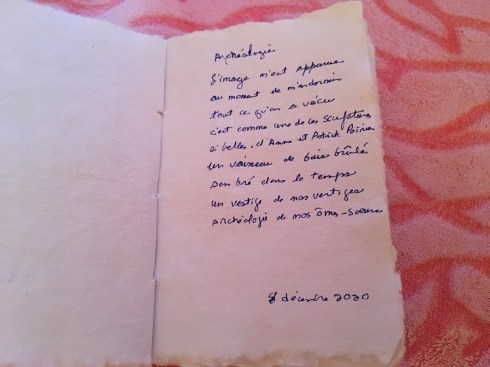 Archéologie
L'image m'est apparue
au moment de m'endormir
tout ce qu'on a vécu
c'est comme une de ces sculptures
si belles, d'Anne et Patrick Poirier
un vaisseau de bois brûlé
sombré dans le temps
un vestige de nos vertiges
archéologie de nos âmes-soeurs
8 décembre 2020